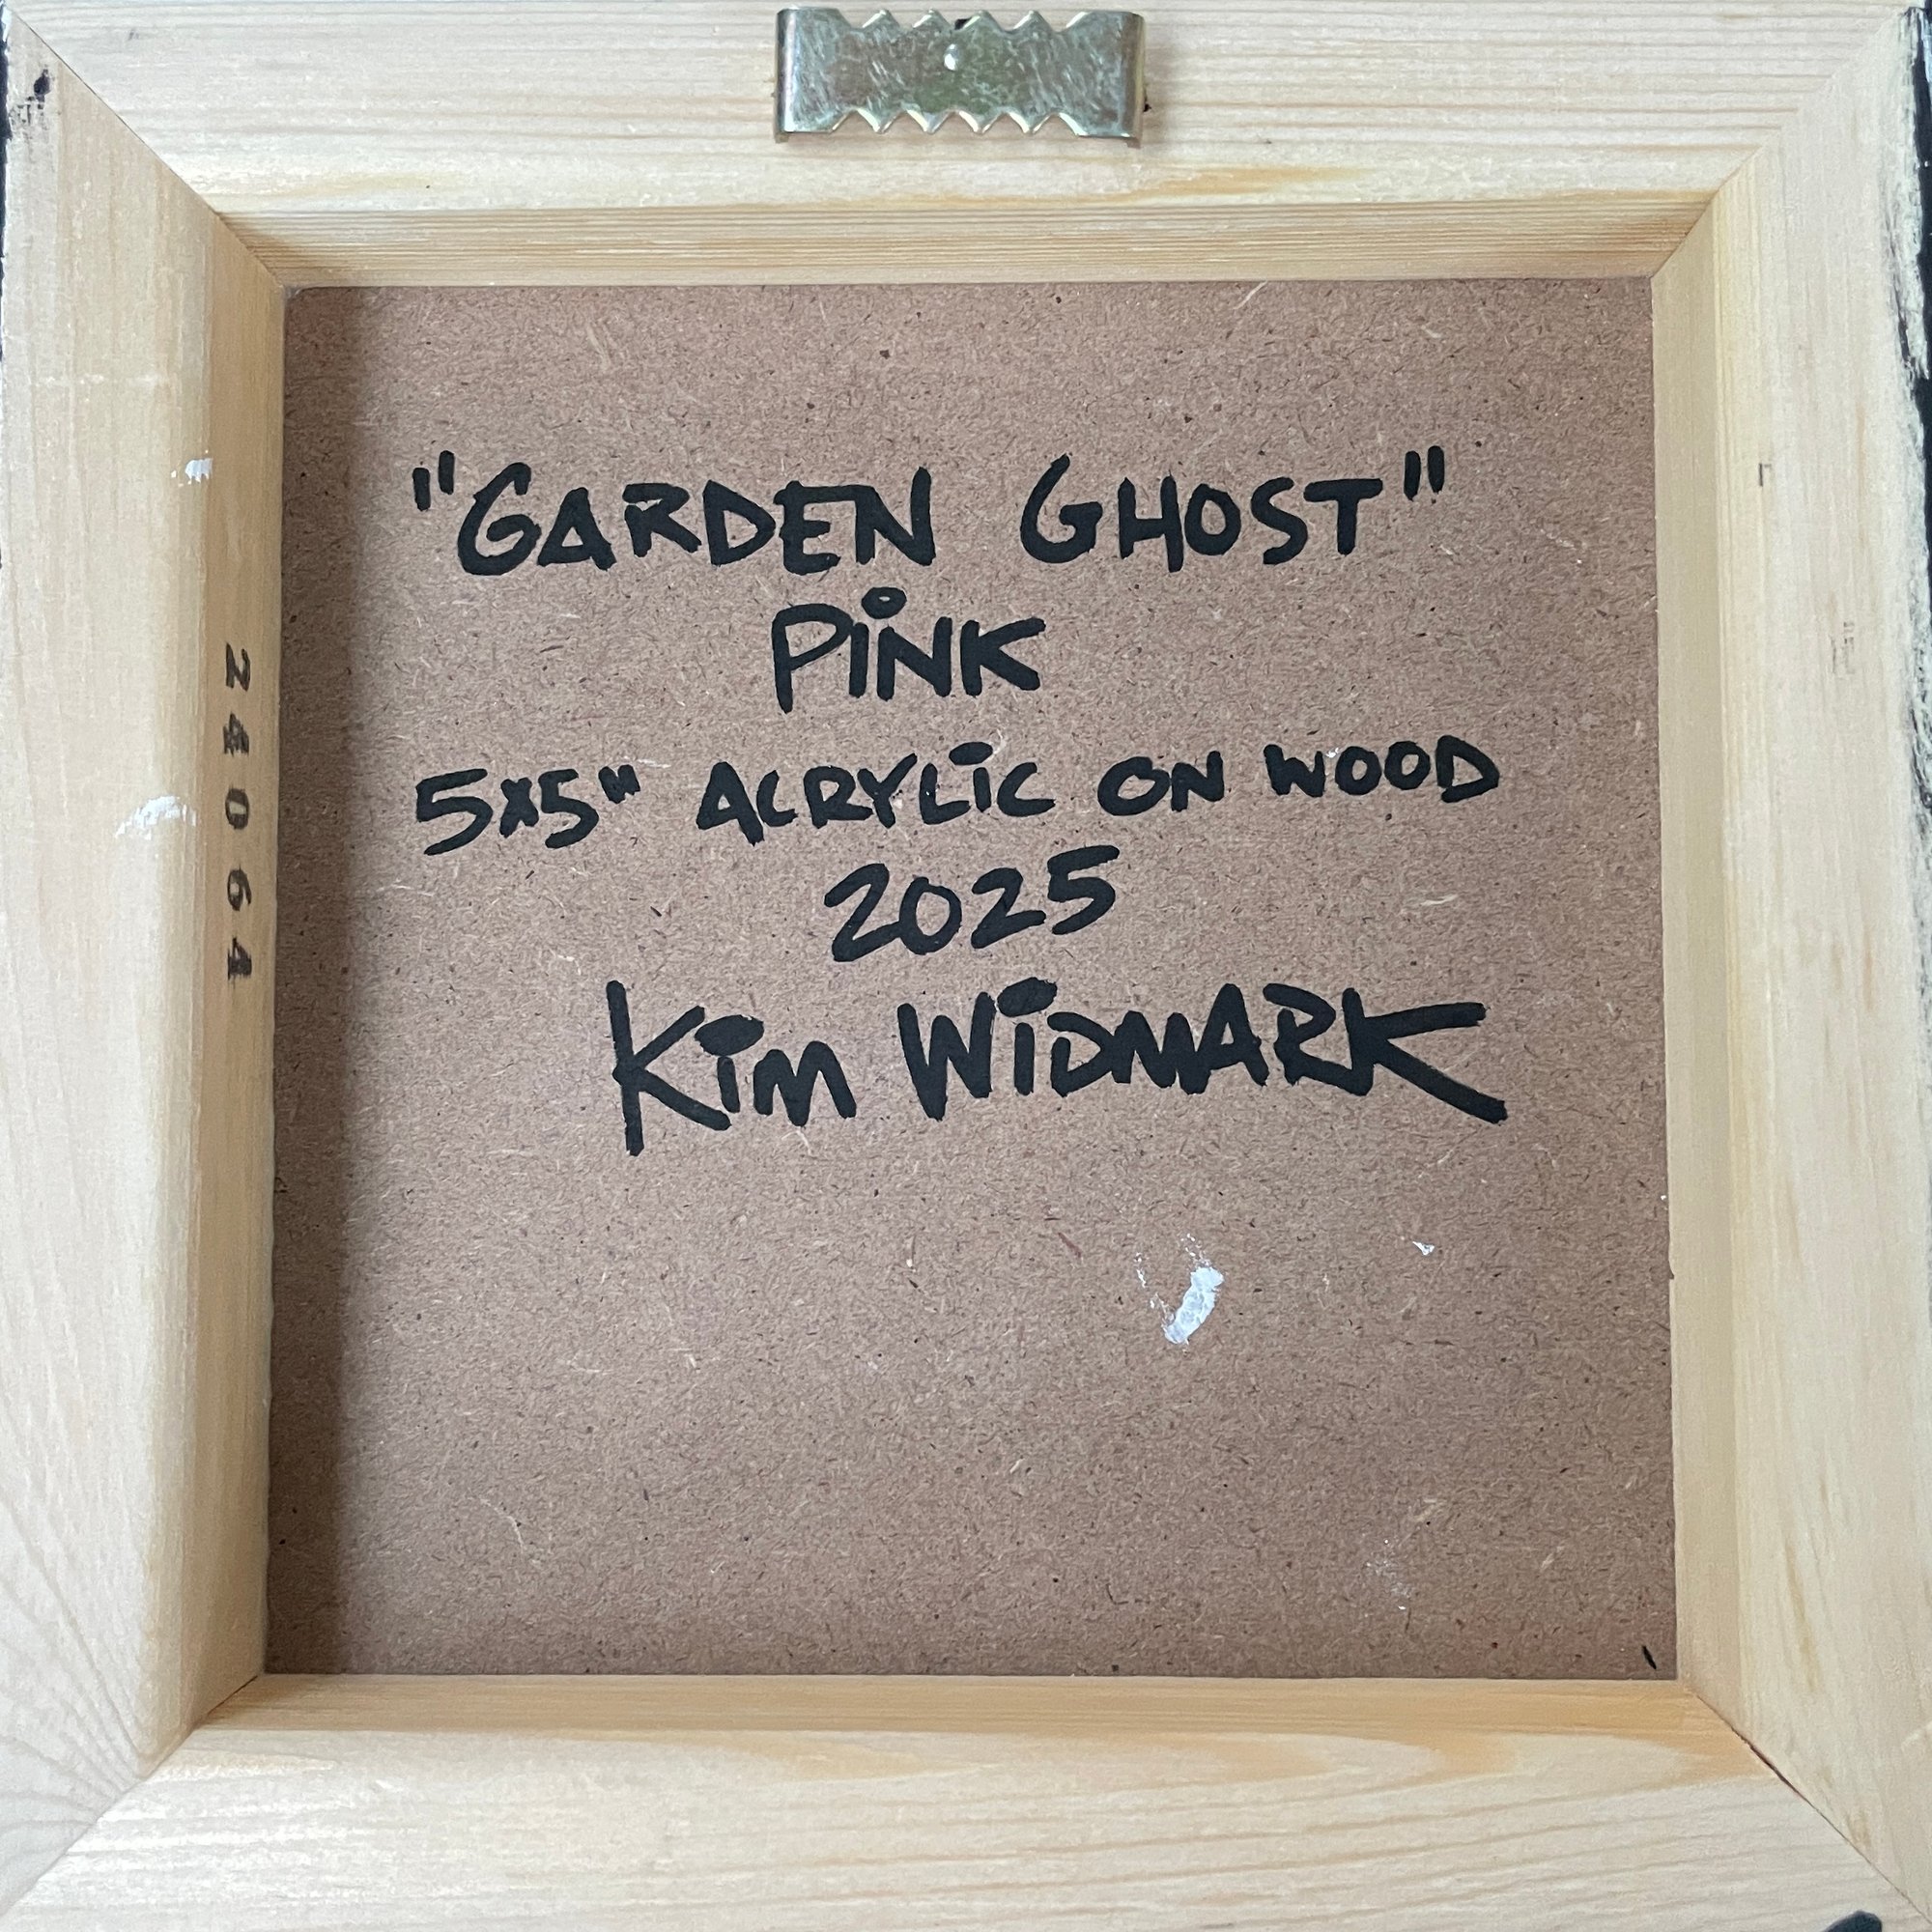 "GARDEN GHOST"
PiNK
5x5" ACRYLiC ON WOOD
2025
KiM WiDMARK
24064